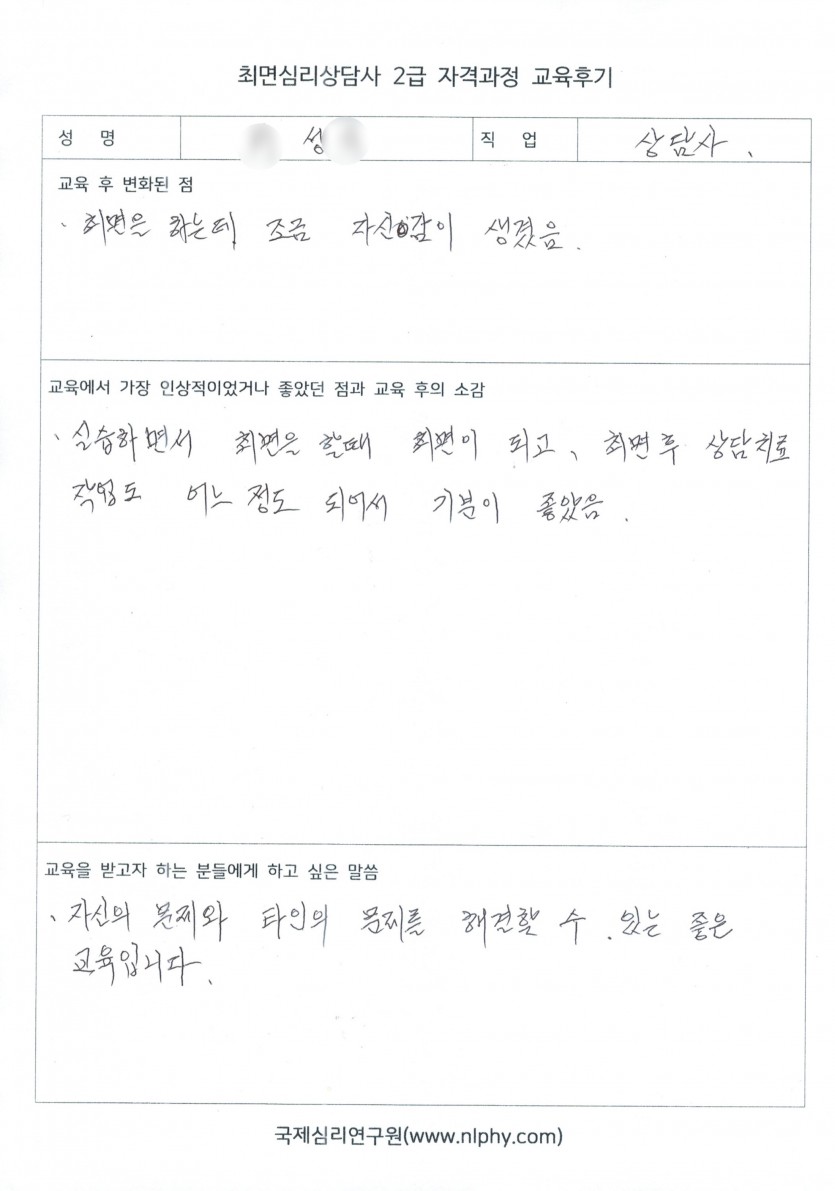 최면심리상담사 2급 자격과정 교육후기
성 명 성 직 업 상담사.
교육 후 변화된 점
· 최면을 하는데 조금 자신감이 생겼음.
교육에서 가장 인상적이었거나 좋았던 점과 교육 후의 소감
· 실습하면서 최면을 할때 최면이 되고, 최면 후 상담치료
작업도 어느 정도 되어서 기분이 좋았음.
교육을 받고자 하는 분들에게 하고 싶은 말씀
· 자신의 문제와 타인의 문제를 해결할 수 있는 좋은
교육입니다.
국제심리연구원(www.nlphy.com)